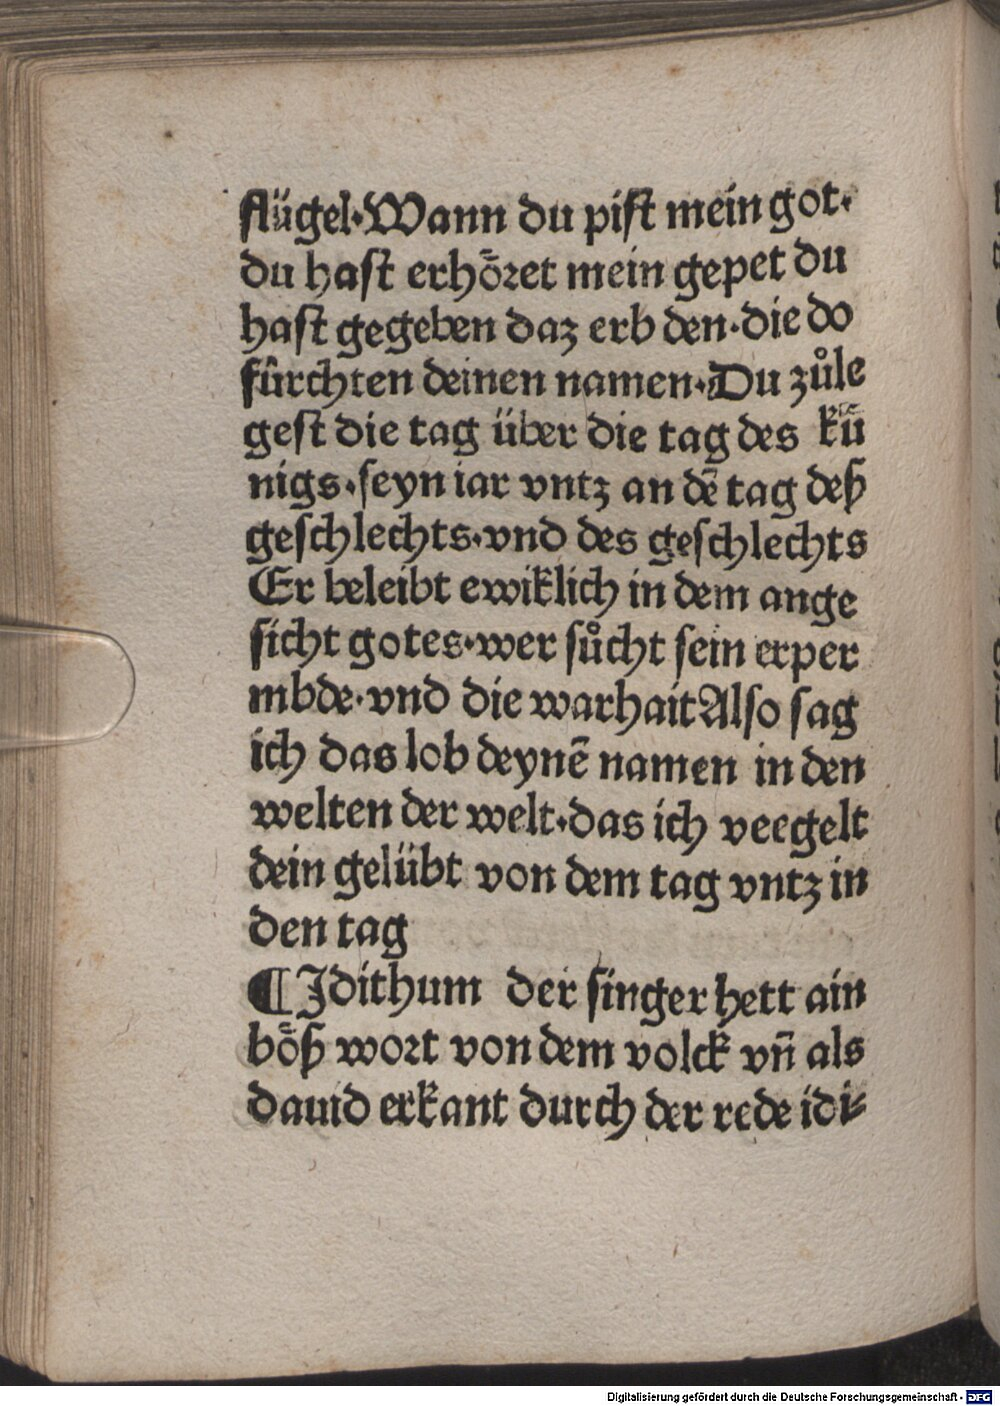 flügel·Wann du pist mein got·
du hast erhöret mein gepet du
hast gegeben daz erb den·die do
fürchten deinen namen·Du zůle
gest die tag über die tag des kü
nigs·seyn iar vntz an dē tag deß
geschlechts·vnd des geschlechts
Er beleibt ewiklich in dem ange
sicht gotes·wer sůcht sein erper
mbde·vnd die warhait Also sag
ich das lob deynē namen in den
welten der welt·das ich veegelt
dein gelübt von dem tag vntz in
den tag
¶ Idithum der singer hett ain
böß wort von dem volck vn̄ als
dauid erkant durch der rede idi⸗
Digitalisierung gefördert durch die Deutsche Forschungsgemeinschaft - DFG